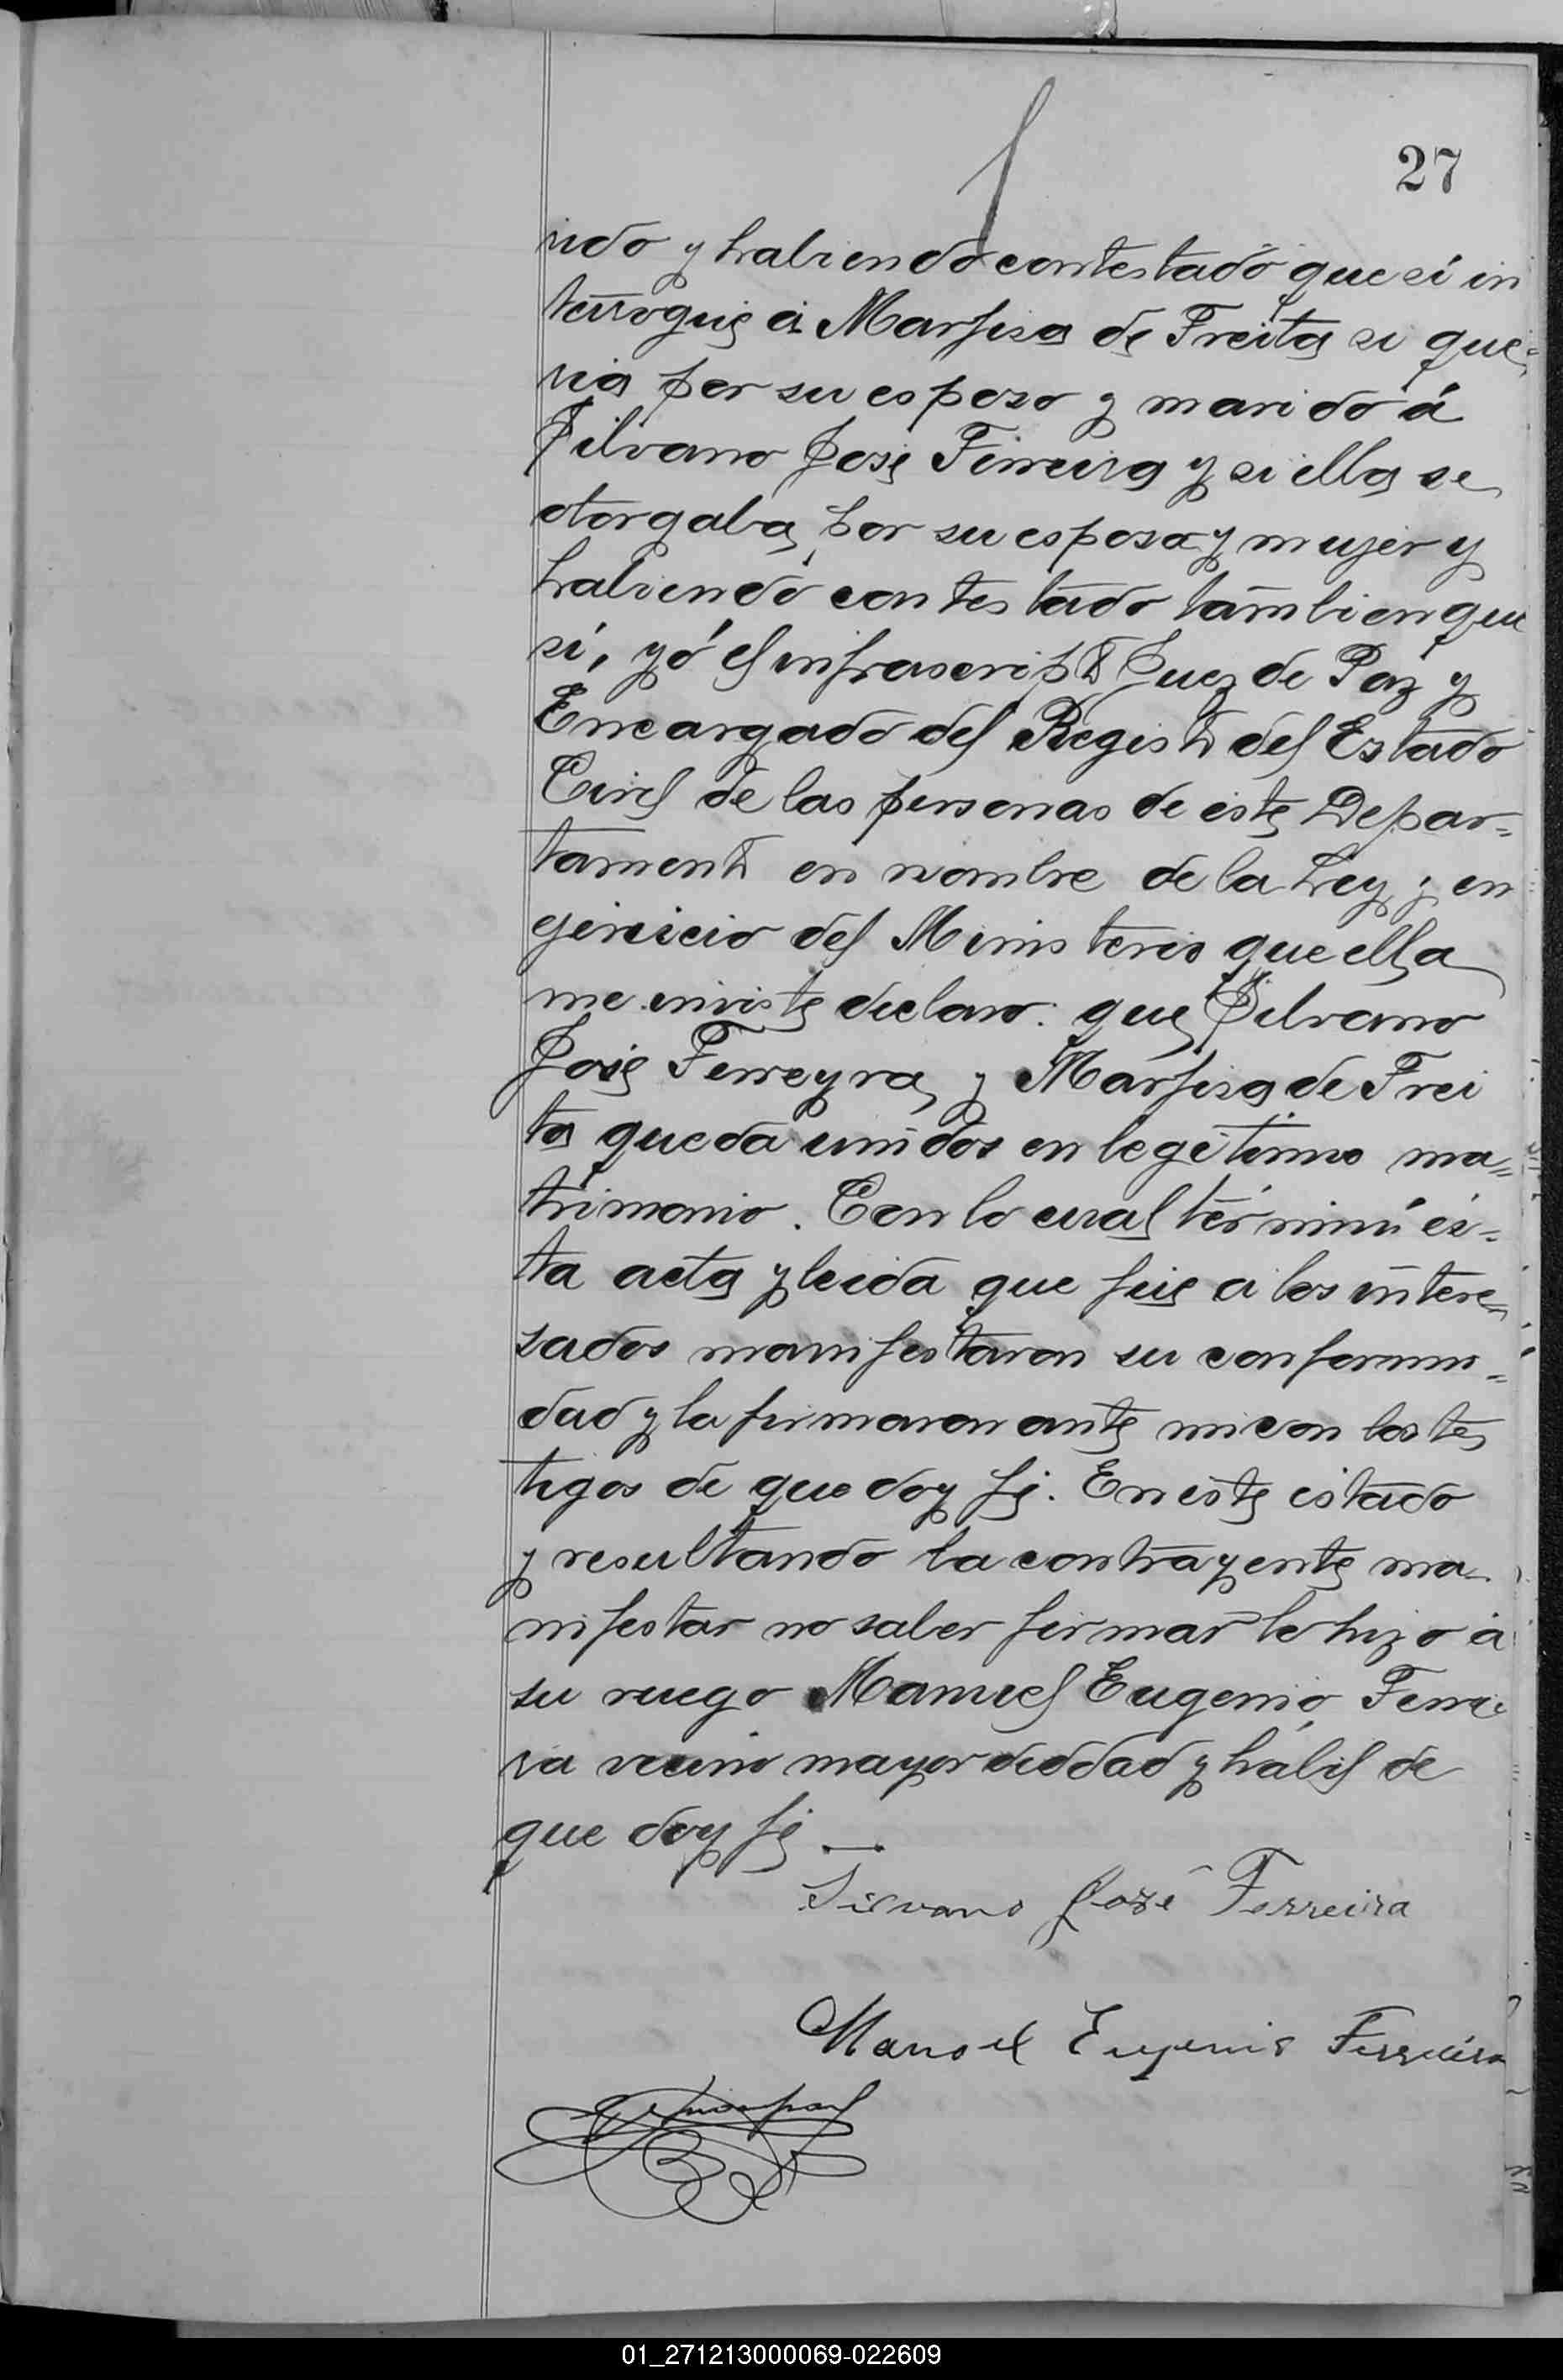 27
rido y habiendo contestado que sí in
terrogué á Marfisa de Freita si que=
ria por su esposo y marido á
Silvano José Ferreira y si ella se
otorgaba por su esposa y mujer y
habiendo contestado tambien que
sí, yó el infrascripto Juez de Paz y
Encargado del Registro del Estado
Civil de las personas de este Depar=
tamento en nombre de la Ley y en
ejercicio del Ministerio que ella
me inviste declaro: que Silvano
José Ferreyra y Marfisa de Frei
ta queda unidos en legítimo ma=
trimonio. Con lo cual terminó és=
ta acta y leida que fué á los intere=
sados manifestaron su conformi=
dad y la firmaron ante mi con los tes
tigos de que doy fé. En este estado
y resultando la contrayente ma=
nifestar no saber firmar lo hizo á
su ruego Manuel Eugenio Ferrei
ra vecino mayor de edad y hábil de
que doy fé —
Silvano José Ferreira
Manoel Eugenio Ferreira
01_271213000069-022609